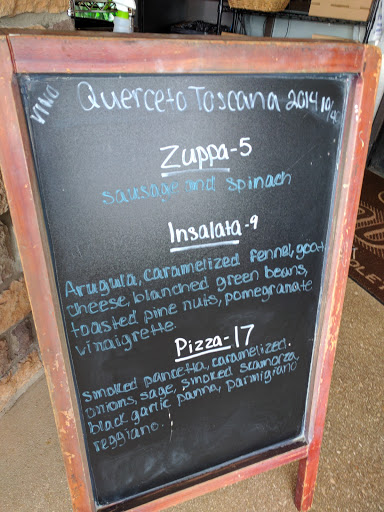 VINO Querceto Toscana 2014 10/40
Zuppa-5
sausage and spinach
Insalata-9
Arugula, caramelized fennel, goat
cheese, blanched green beans,
toasted pine nuts, pomegranate
vinaigrette.
Pizza-17
smoked pancetta, caramelized
onions, sage, smoked scamorza,
black garlic panna, parmigiano
reggiano.